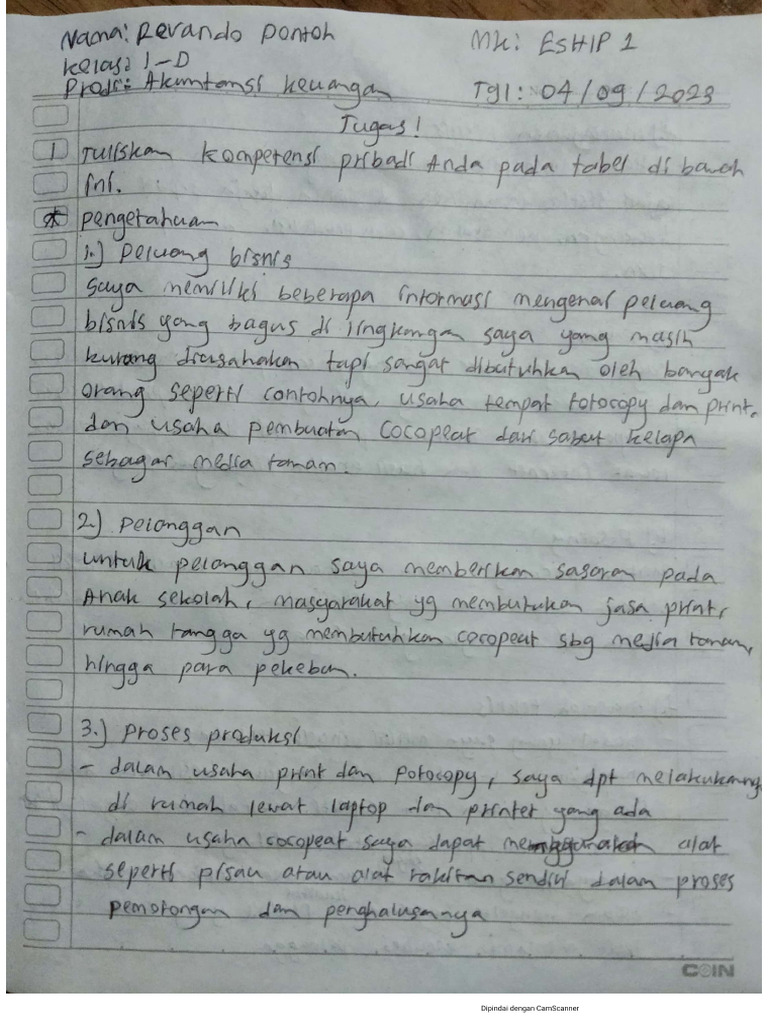 Nama: Revando Pontoh
MK: ESHIP 1
Kelas: 1-D
Prodi: Akuntansi Keuangan
Tgl: 04/09/2023
Tugas!
1 Tuliskan kompetensi pribadi Anda pada tabel di bawah
ini.
* Pengetahuan
1.) Peluang bisnis
Saya memiliki beberapa informasi mengenai peluang
bisnis yang bagus di lingkungan saya yang masih
kurang diusahakan tapi sangat dibutuhkan oleh banyak
orang seperti contohnya, usaha tempat fotocopy dan print,
dan usaha pembuatan cocopeat dari sabut kelapa
sebagai media tanam.
2.) Pelanggan
untuk pelanggan saya memberikan sasaran pada
Anak sekolah, masyarakat yg membutukan jasa print,
rumah tangga yg membutuhkan cocopeat sbg media tanam,
hingga para pekebun.
3.) Proses produksi
- dalam usaha print dan potocopy, saya dpt melakukannya
di rumah lewat laptop dan printer yang ada
- dalam usaha cocopeat saya dapat menggunakan alat
seperti pisau atau alat rakitan sendiri dalam proses
pemotongan dan penghalusannya
COIN
Dipindai dengan CamScanner